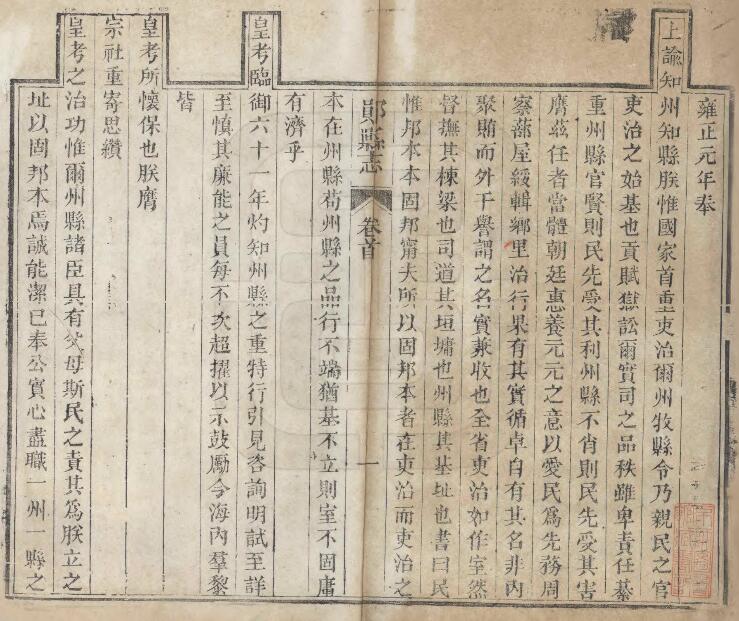 雍正元年奉
上諭知州知縣朕惟國家首重吏治爾州牧縣令乃親民之官
吏治之始基也貢賦獄訟爾實司之品秩雖卑責任綦
重州縣官賢則民先受其利州縣不肖則民先受其害
膺茲任者當體朝廷惠養元元之意以愛民為先務周
察蔀屋綏輯鄉里治行果有其實循卓自有其名非內
聚賄而外干譽謂之名實兼收也全省吏治如作室然
督撫其棟梁也司道其垣墉也州縣其基址也書曰民
惟邦本本固邦甯夫所以固邦本者在吏治而吏治之
鄖縣志
卷首
一
本在州縣苟州縣之品行不端猶基不立則室不固庸
有濟乎
皇考臨御六十一年灼知州縣之重特行引見咨詢明試至詳
至慎其廉能之員每不次超擢以示鼓勵今海內羣黎
皆
皇考所懷保也朕膺
宗社重寄思纘
皇考之治功惟爾州縣諸臣具有父母斯民之責其為朕立之
址以固邦本焉誠能潔已奉公實心盡職一州一縣之